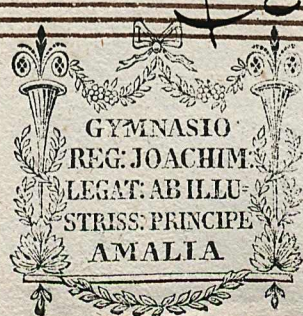 GYMNASIO
REG: JOACHIM:
LEGAT: AB ILLU=
STRISS: PRINCIPE
AMALIA